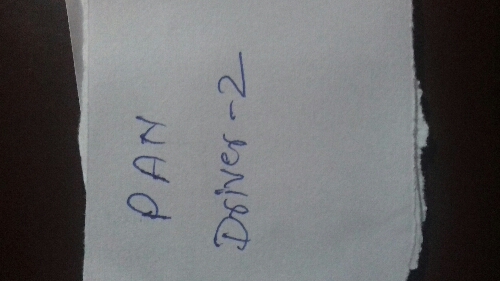 PAN
Driver-2